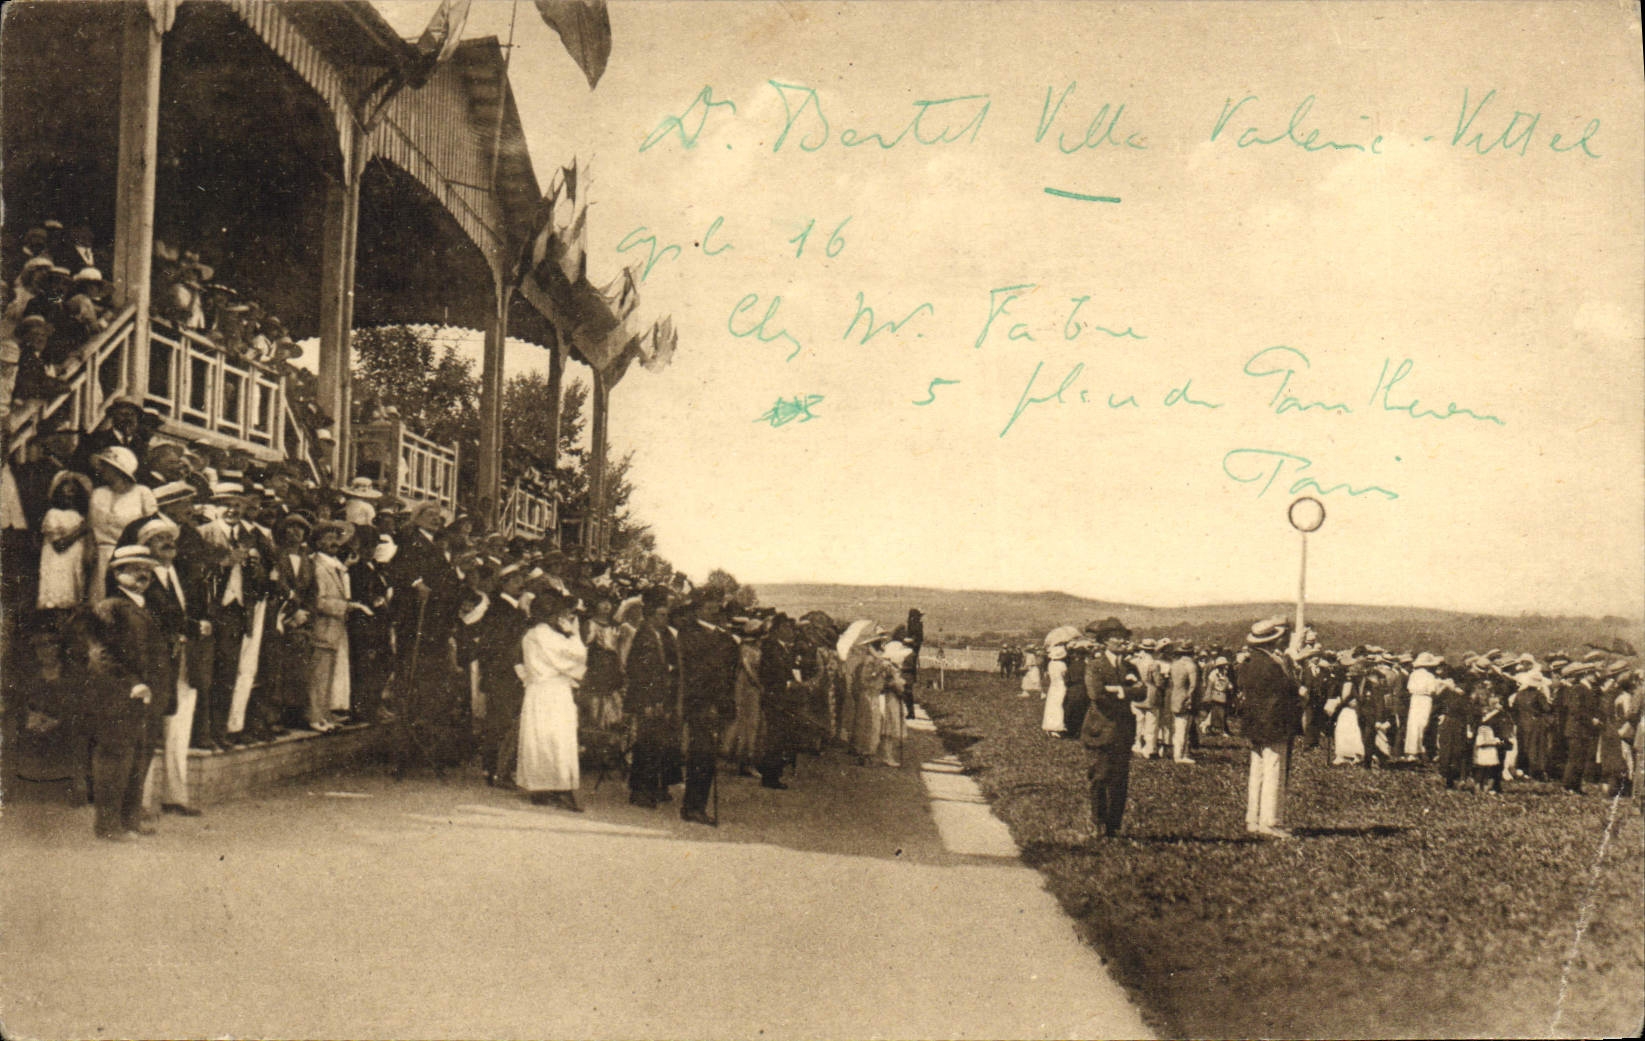 Dr. Bertet Villa Valérie - Vittel
après le 16
Chez Mr. Fabre
5 place du Panthéon
Paris